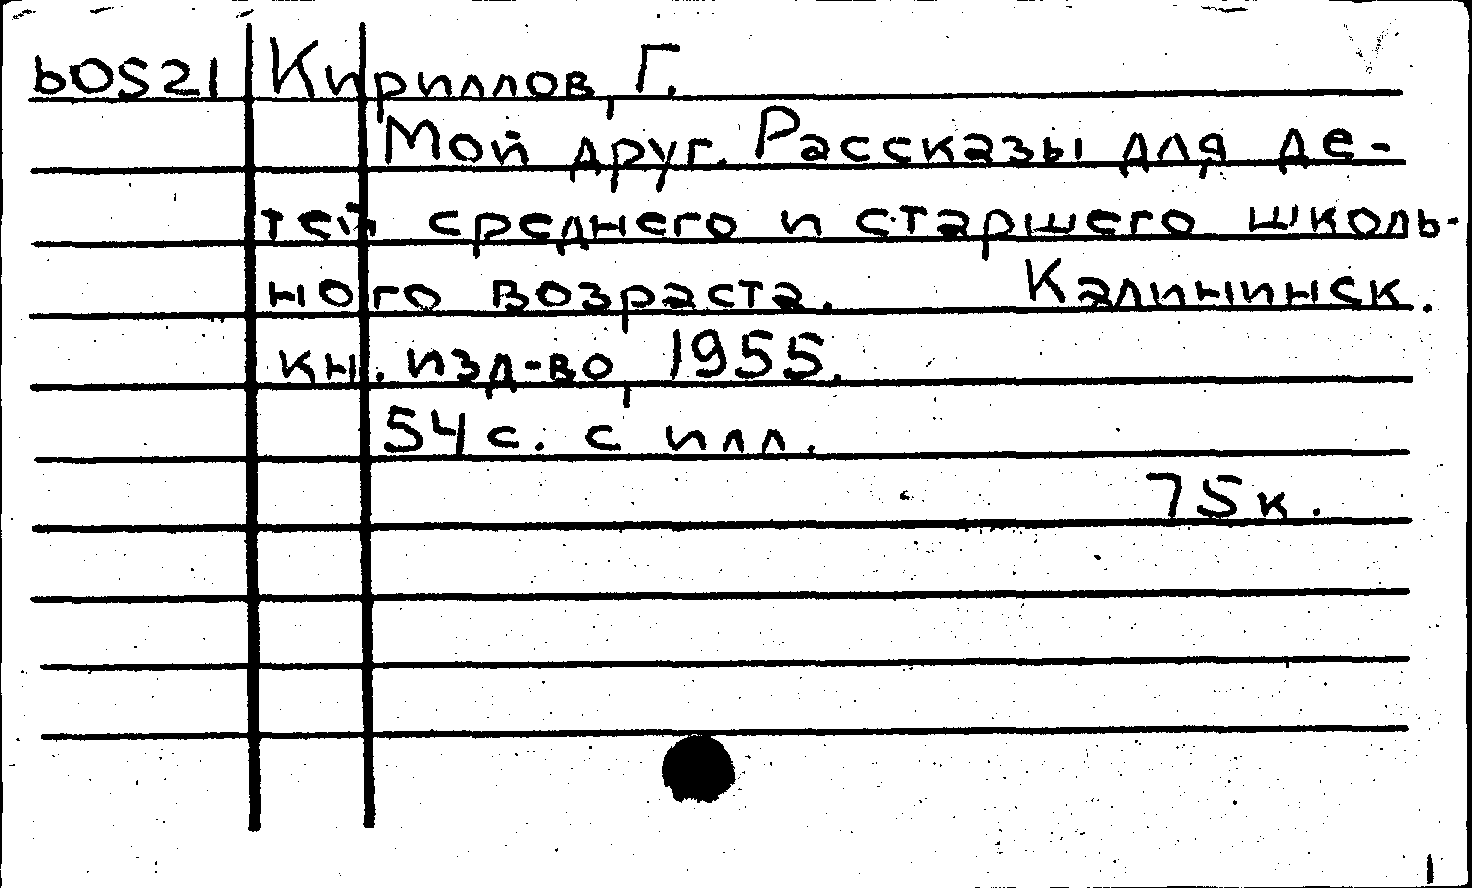 60521 Кириллов, Г.
Мой друг. Рассказы для де-
тей среднего и старшего школь-
ного возраста. Калининск.
кн. изд-во, 1955.
54 с. с илл.
75к.